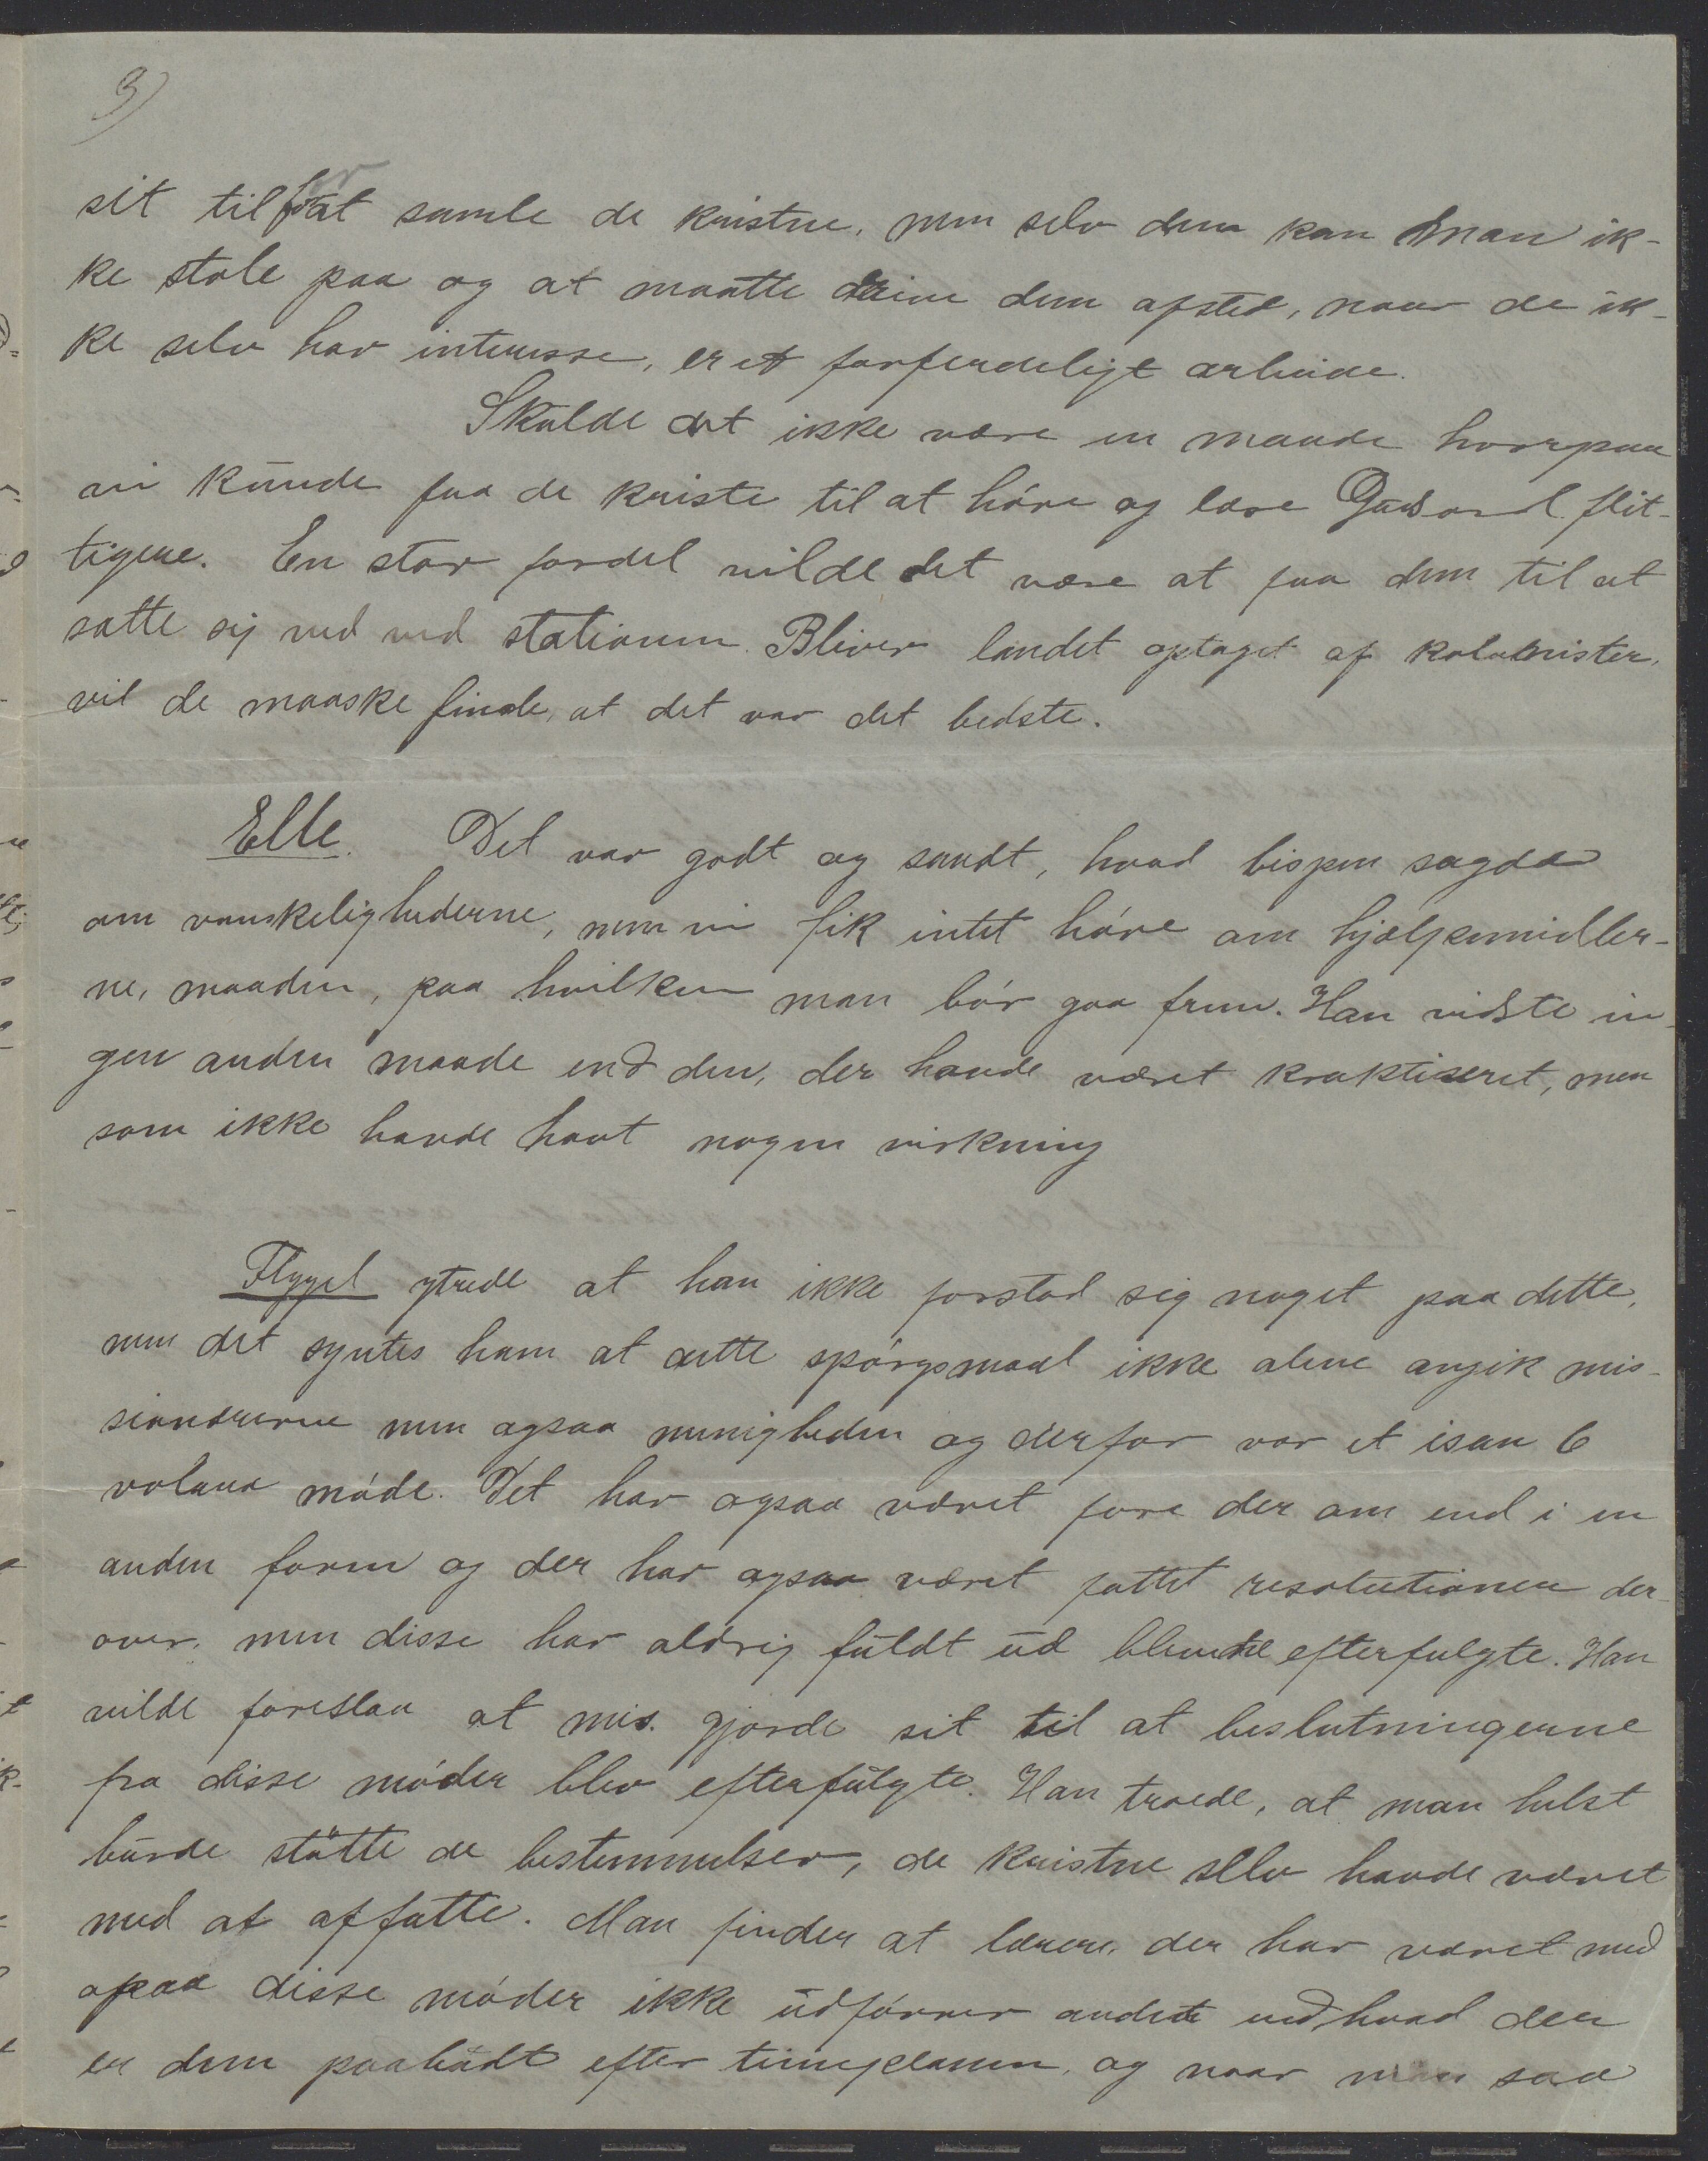 3)
sit til for at samle de kristne, men selv dem kan man ik-
ke stole paa og at maatte drive dem afsted, naar de ik-
ke selv har interesse, er et forferdeligt arbeide.
Skulde det ikke være en maade hvorpaa
vi kunde faa de kriste til at høre og lære Guds ord flit-
tigere. En stor fordel vilde det være at faa dem til at
sætte sig ned ved stationen. Bliver landet optaget af kolonister,
vil de maaske finde, at det var det bedste.
Elle. Det var godt og sandt, hvad bispen sagde
om vanskelighederne, men vi fik intet høre om hjælpemidler-
ne, maaden, paa hvilken man bør gaa frem. Han vidste in-
gen anden maade end den, der havde været praktiseret, men
som ikke havde havt nogen virkning
Flygel ytrede at han ikke forstod sig noget paa dette,
men det syntes ham at dette spørgsmaal ikke alene angik mis-
sionærerne men ogsaa menigheden og derfor var et isan 6
volana møde. Det har ogsaa været fore der om end i en
anden form og der har ogsaa været fattet resolutioner der-
over, men disse har aldrig fuldt ud blevne efterfulgte. Han
vilde foreslaa at mis. gjorde sit til at beslutningerne
fra disse møder blev efterfulgte. Han troede, at man helst
burde støtte de bestemmelser, de kristne selv havde været
med at affatte. Man finder at lærere, der har været med
paa disse møder ikke udfører andet end hvad der
er dem paabudt efter timeplanen, og naar man saa